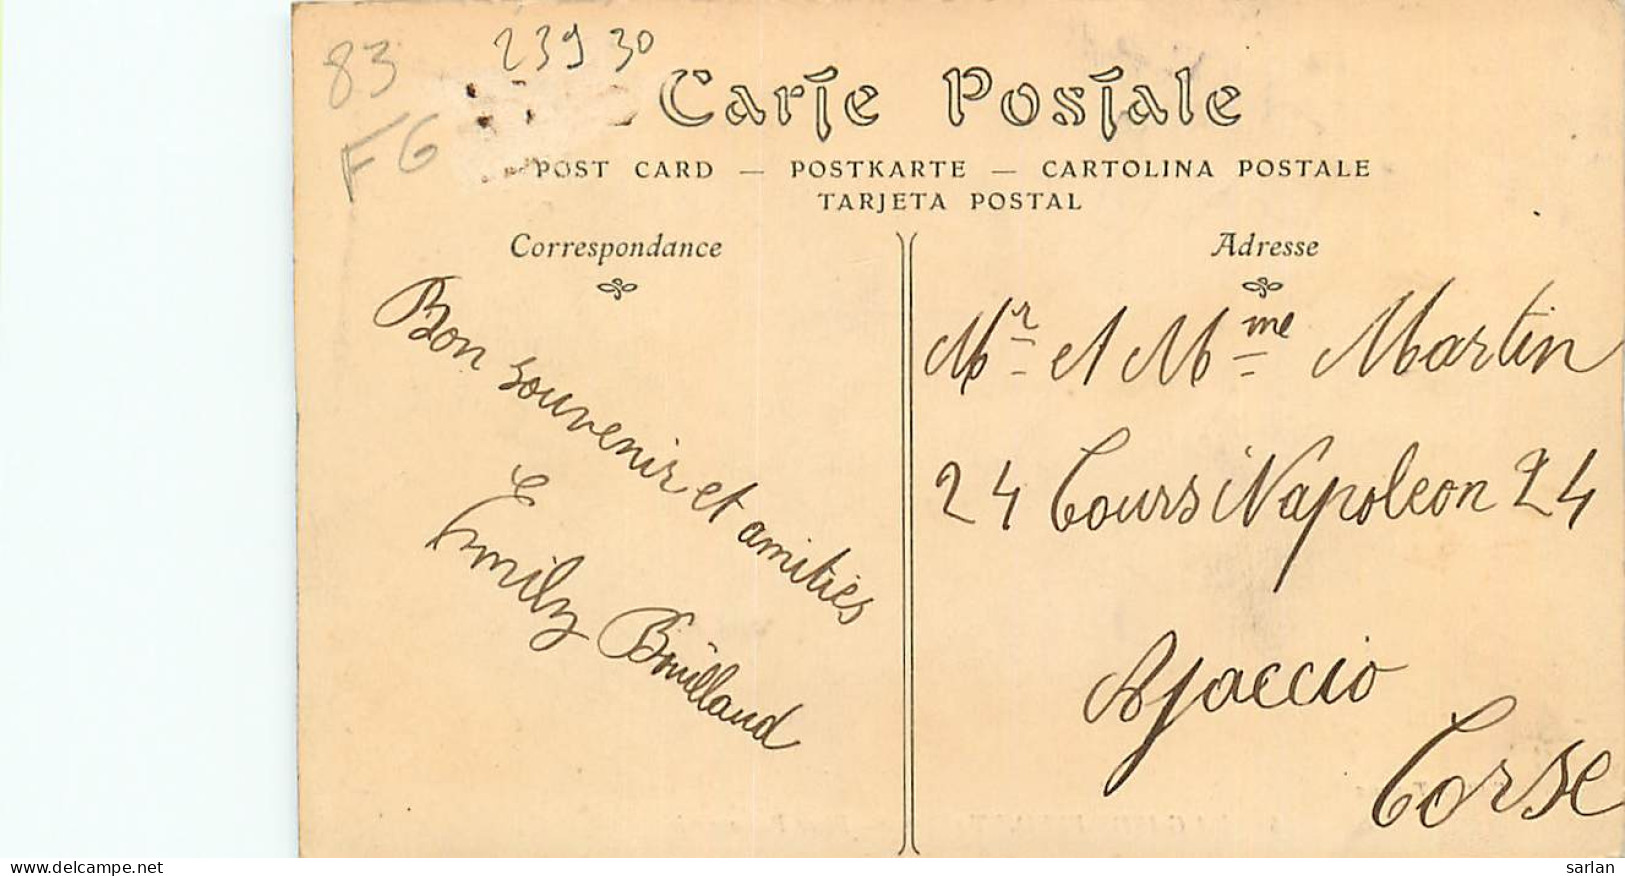 83
F6
23930
Carte Postale
POST CARD — POSTKARTE — CARTOLINA POSTALE
TARJETA POSTAL
Correspondance
Bon souvenir et amitiés
Emily Bouillaud
Adresse
Mr et Mme Martin
24 Cours Napoleon 24
Ajaccio
Corse
sarlan